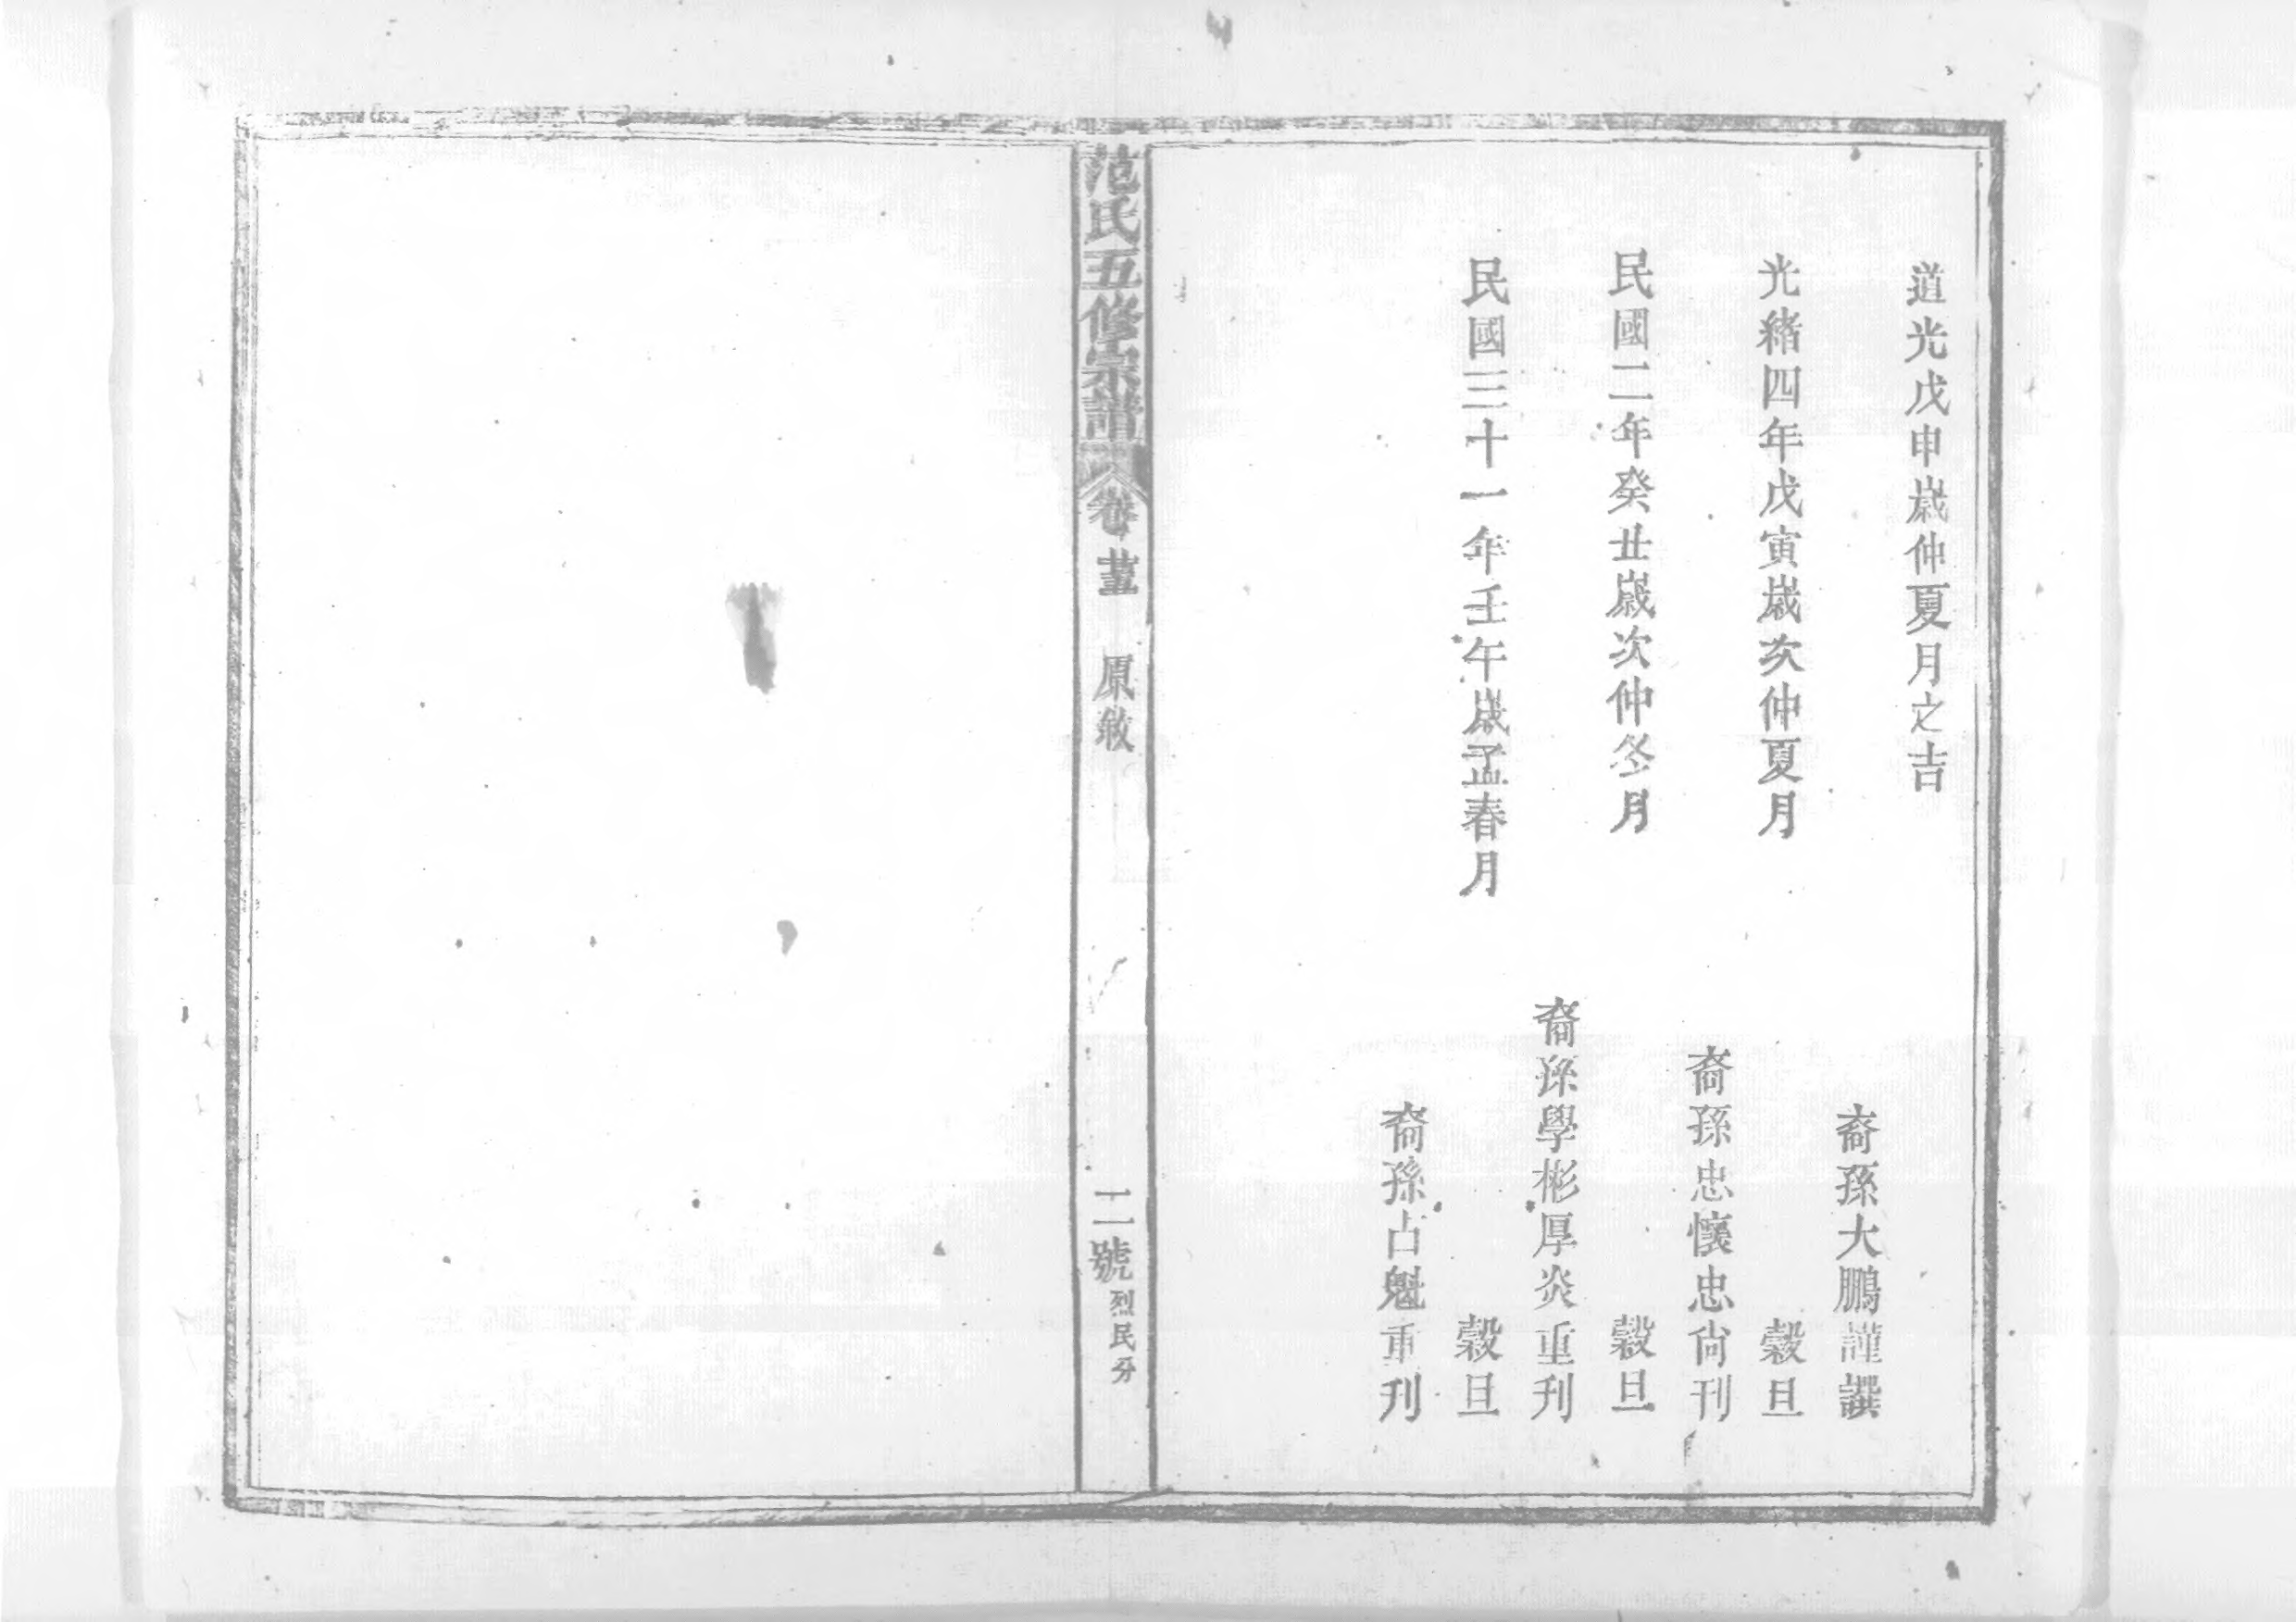 道光戊申歲仲夏月之吉
裔孫大鵬謹譔
光緒四年戊寅歲次仲夏月　穀旦
裔孫忠懷忠尙刊
民國二年癸丑歲次仲冬月　穀旦
裔孫學彬厚炎重刊
民國三十一年壬午歲孟春月　穀旦
裔孫占魁重刊
范氏五修宗譜　卷　原敘　二號　烈民分